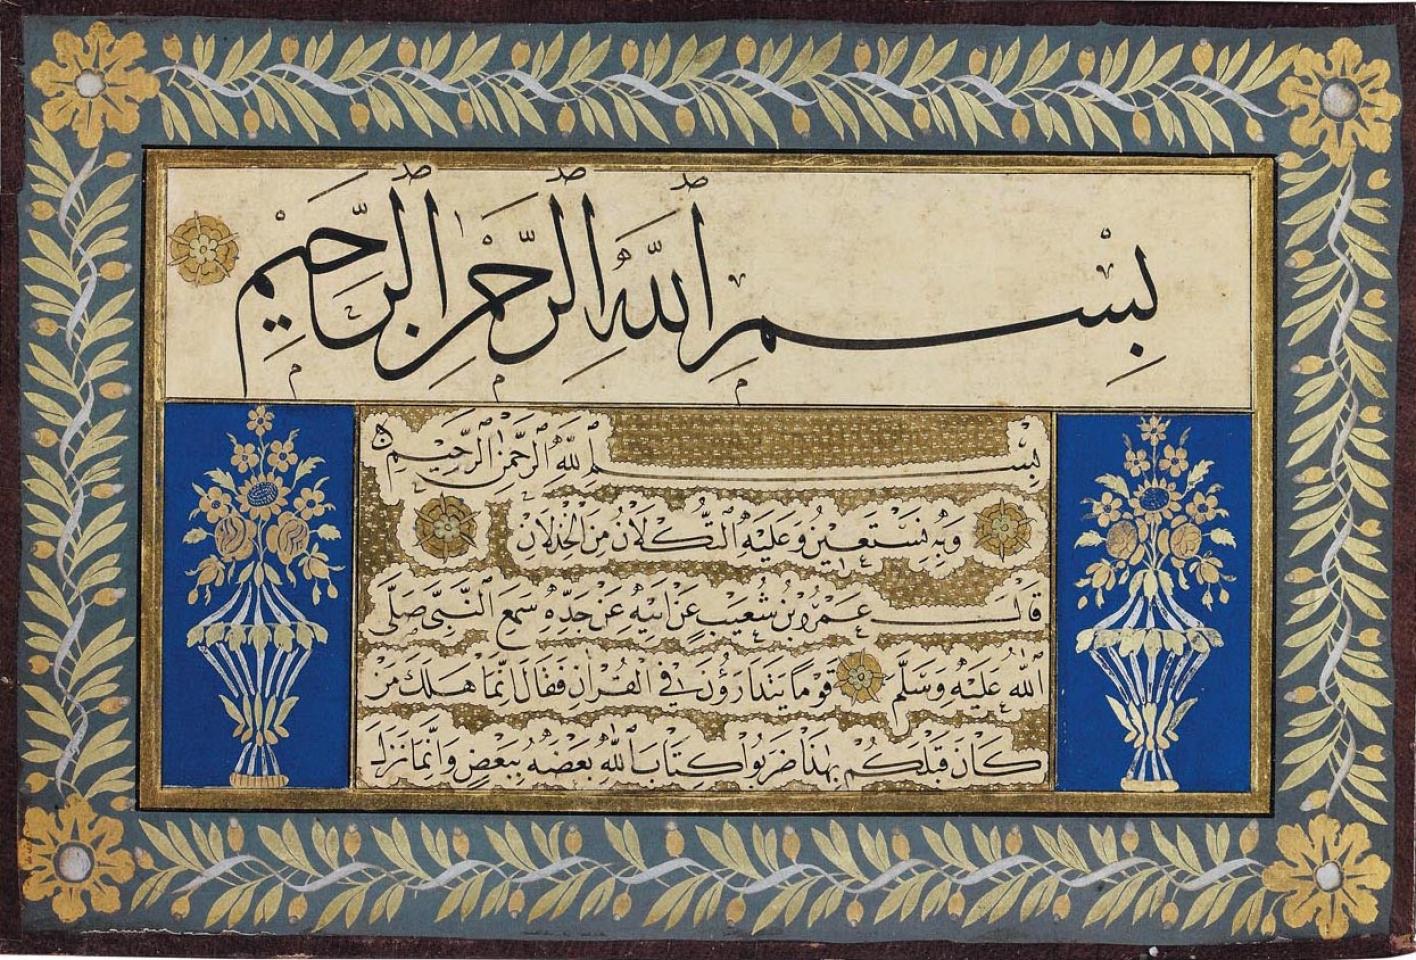 بِسْمِ اللّٰهِ الرَّحْمٰنِ الرَّحِيمِ
بِسْمِ اللّٰهِ الرَّحْمٰنِ الرَّحِيمِ
وَبِهِ نَسْتَعِينُ وَعَلَيْهِ التُّكْلَانُ مِنَ الْخِذْلَانِ
قَالَ عَمْرُو بْنُ شُعَيْبٍ عَنْ اَبِيهِ عَنْ جَدِّهِ سَمِعَ النَّبِىُّ صَلَّى
اللّٰهُ عَلَيْهِ وَسَلَّمَ قَوْمًا يَتَدَارَؤُنَ فِى الْقُرْاٰنِ فَقَالَ اِنَّمَا هَلَكَ مَنْ
كَانَ قَبْلَكُمْ بِهٰذَا ضَرَبُوا كِتَابَ اللّٰهِ بَعْضَهُ بِبَعْضٍ وَاِنَّمَا نَزَلَ